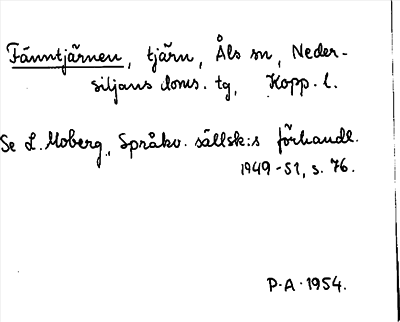 Fänntjärnen, tjärn, Åls sn, Neder-
siljans doms. tg, Kopp. l.
Se L. Moberg, Språkv. sällsk:s förhandl.
1949-51, s. 76.
P-A. 1954.